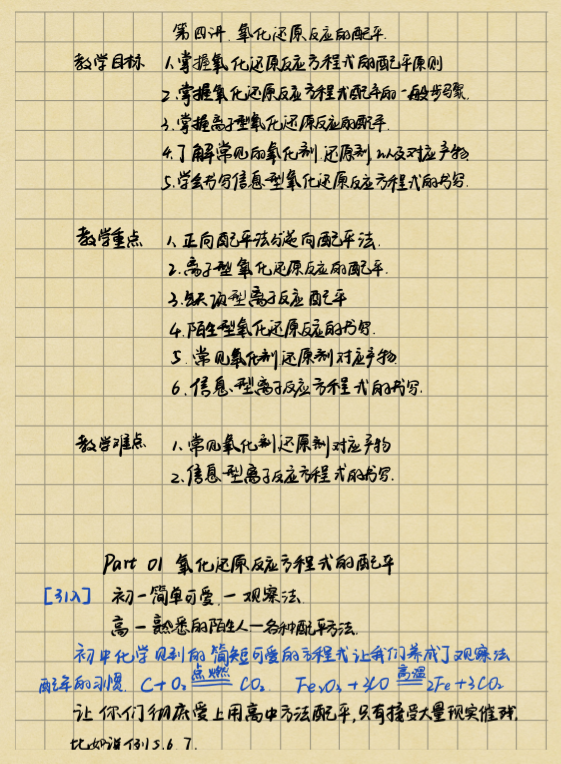 第四讲 氧化还原反应的配平.
教学目标 1.掌握氧化还原反应方程式的配平原则
2.掌握氧化还原反应方程式配平的一般步骤.
3.掌握离子型氧化还原反应的配平.
4.了解常见的氧化剂.还原剂.以及对应产物
5.学会书写信息型氧化还原反应方程式的书写.
教学重点 1.正向配平法与逆向配平法.
2.离子型氧化还原反应的配平.
3.缺项型离子反应配平
4.陌生型氧化还原反应的书写.
5.常见氧化剂还原剂对应产物
6.信息型离子反应方程式的书写.
教学难点 1.常见氧化剂还原剂对应产物
2.信息型离子反应方程式的书写.
Part 01 氧化还原反应方程式的配平
[引入] 初一简单可爱.一观察法
高一熟悉的陌生人一各种配平方法.
初中化学见到的简短可爱的方程式让我们养成了观察法
配平的习惯. C+O₂ 点燃 CO₂ Fe₂O₃+3CO 高温 2Fe+3CO₂
让你们彻底爱上用高中方法配平,只有接受大量现实催残.
比如说例5.6.7.